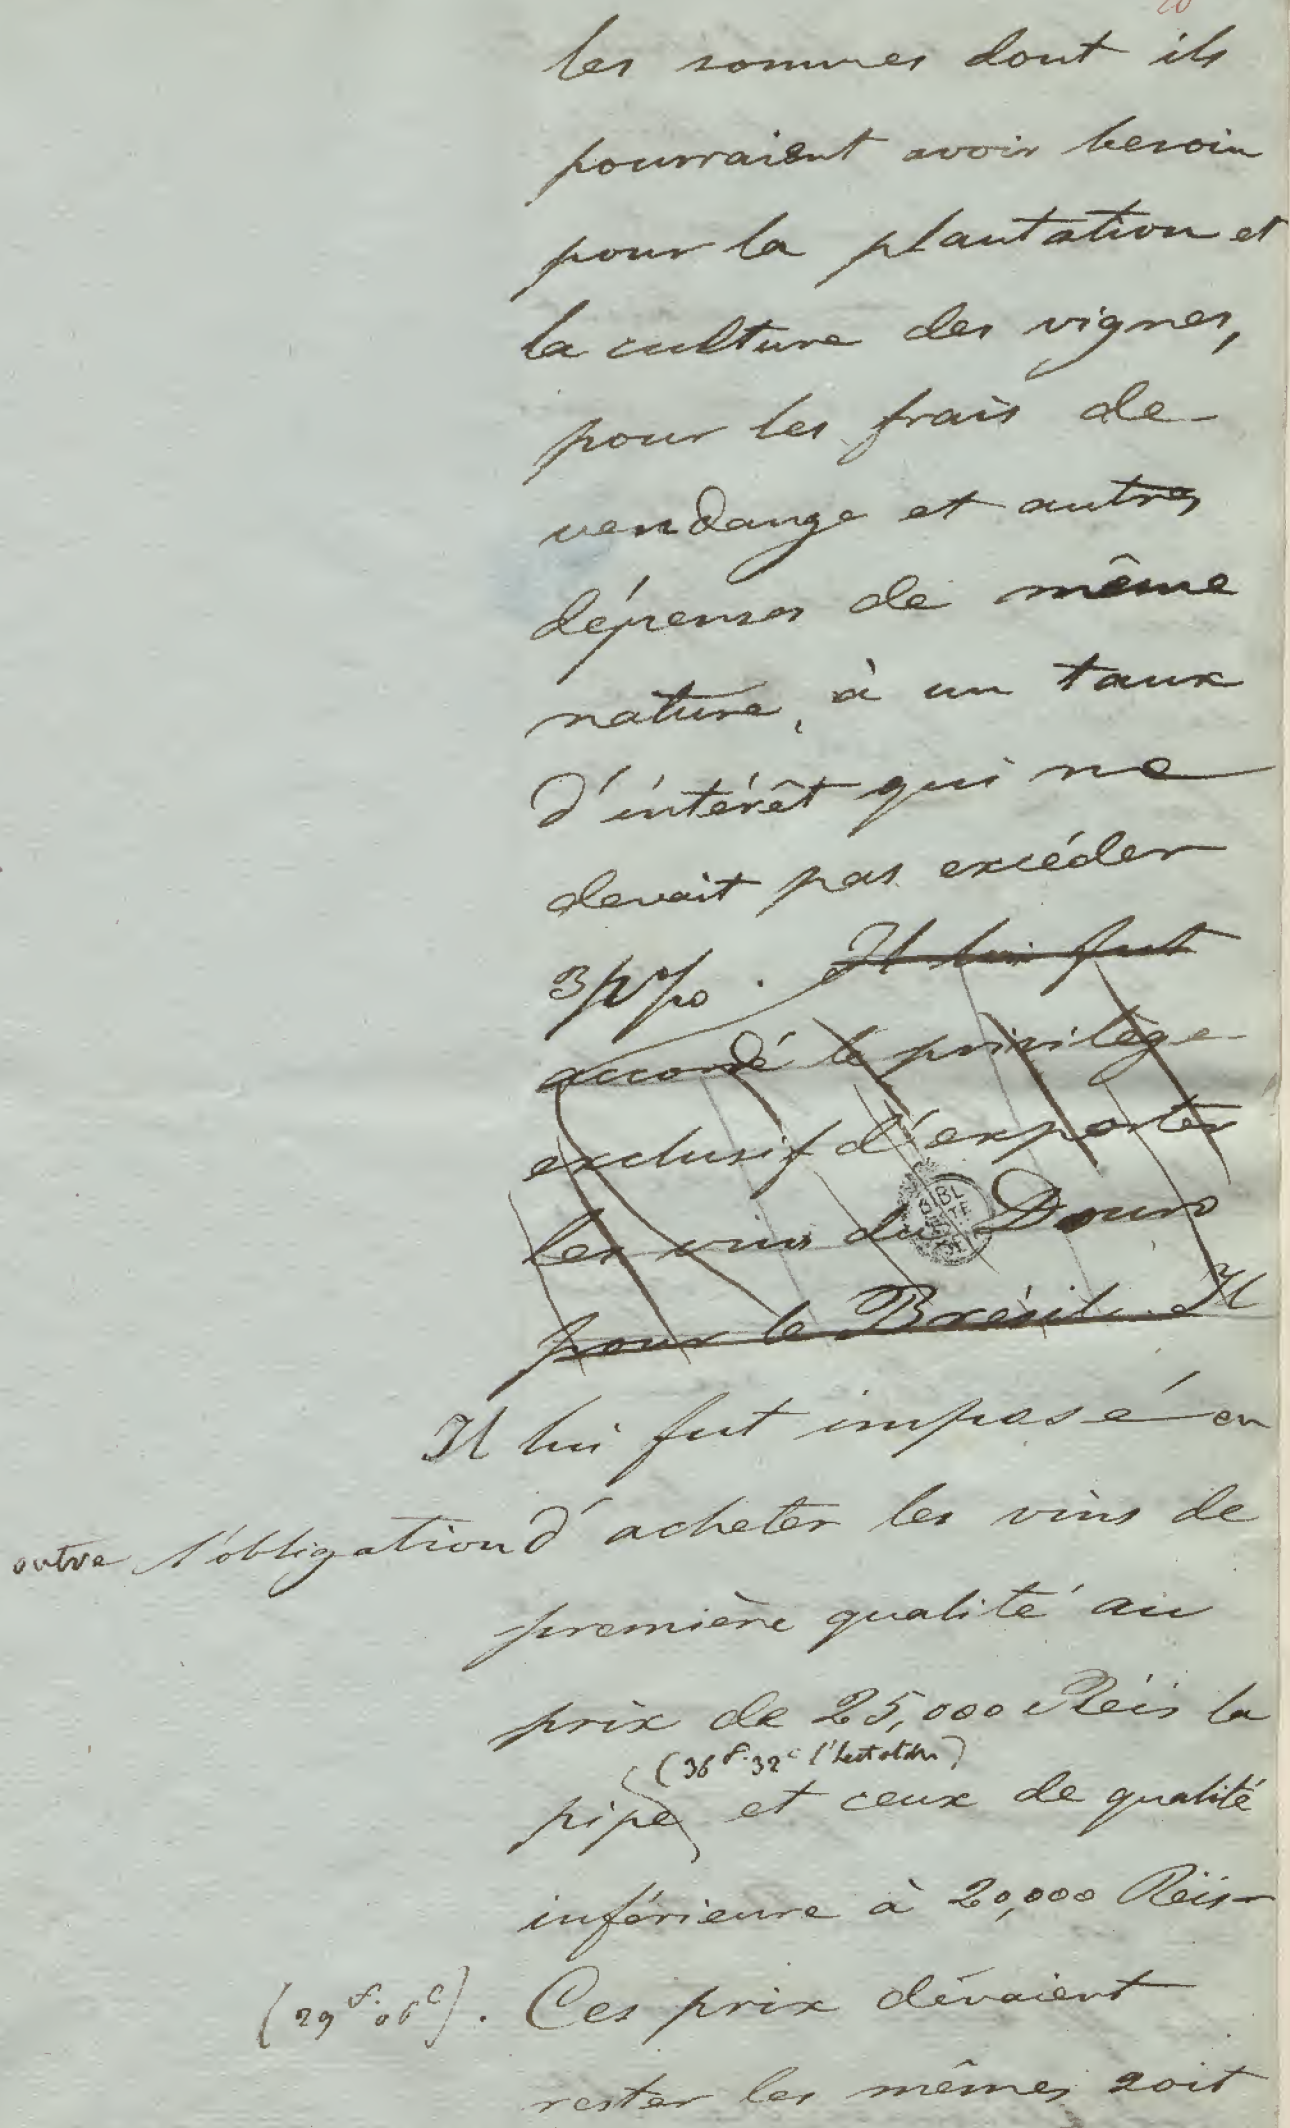 20
les sommes dont ils
pourraient avoir besoin
pour la plantation et
la culture des vignes,
pour les frais de
vendange et autres
dépenses de même
nature, à un taux
d'intérêt qui ne
devait pas excéder
3 p%. Il lui fut
accordé le privilège
exclusif d'exporter
les vins du Douro
pour le Brésil. Il
Il lui fut imposé en
outre l'obligation d'acheter les vins de
première qualité au
prix de 25,000 Réis la
(36 f. 32 c l'hectolitre)
pipe et ceux de qualité
inférieure à 20,000 Réis
(29 f. 06 c). Ces prix dévaient
rester les mêmes soit